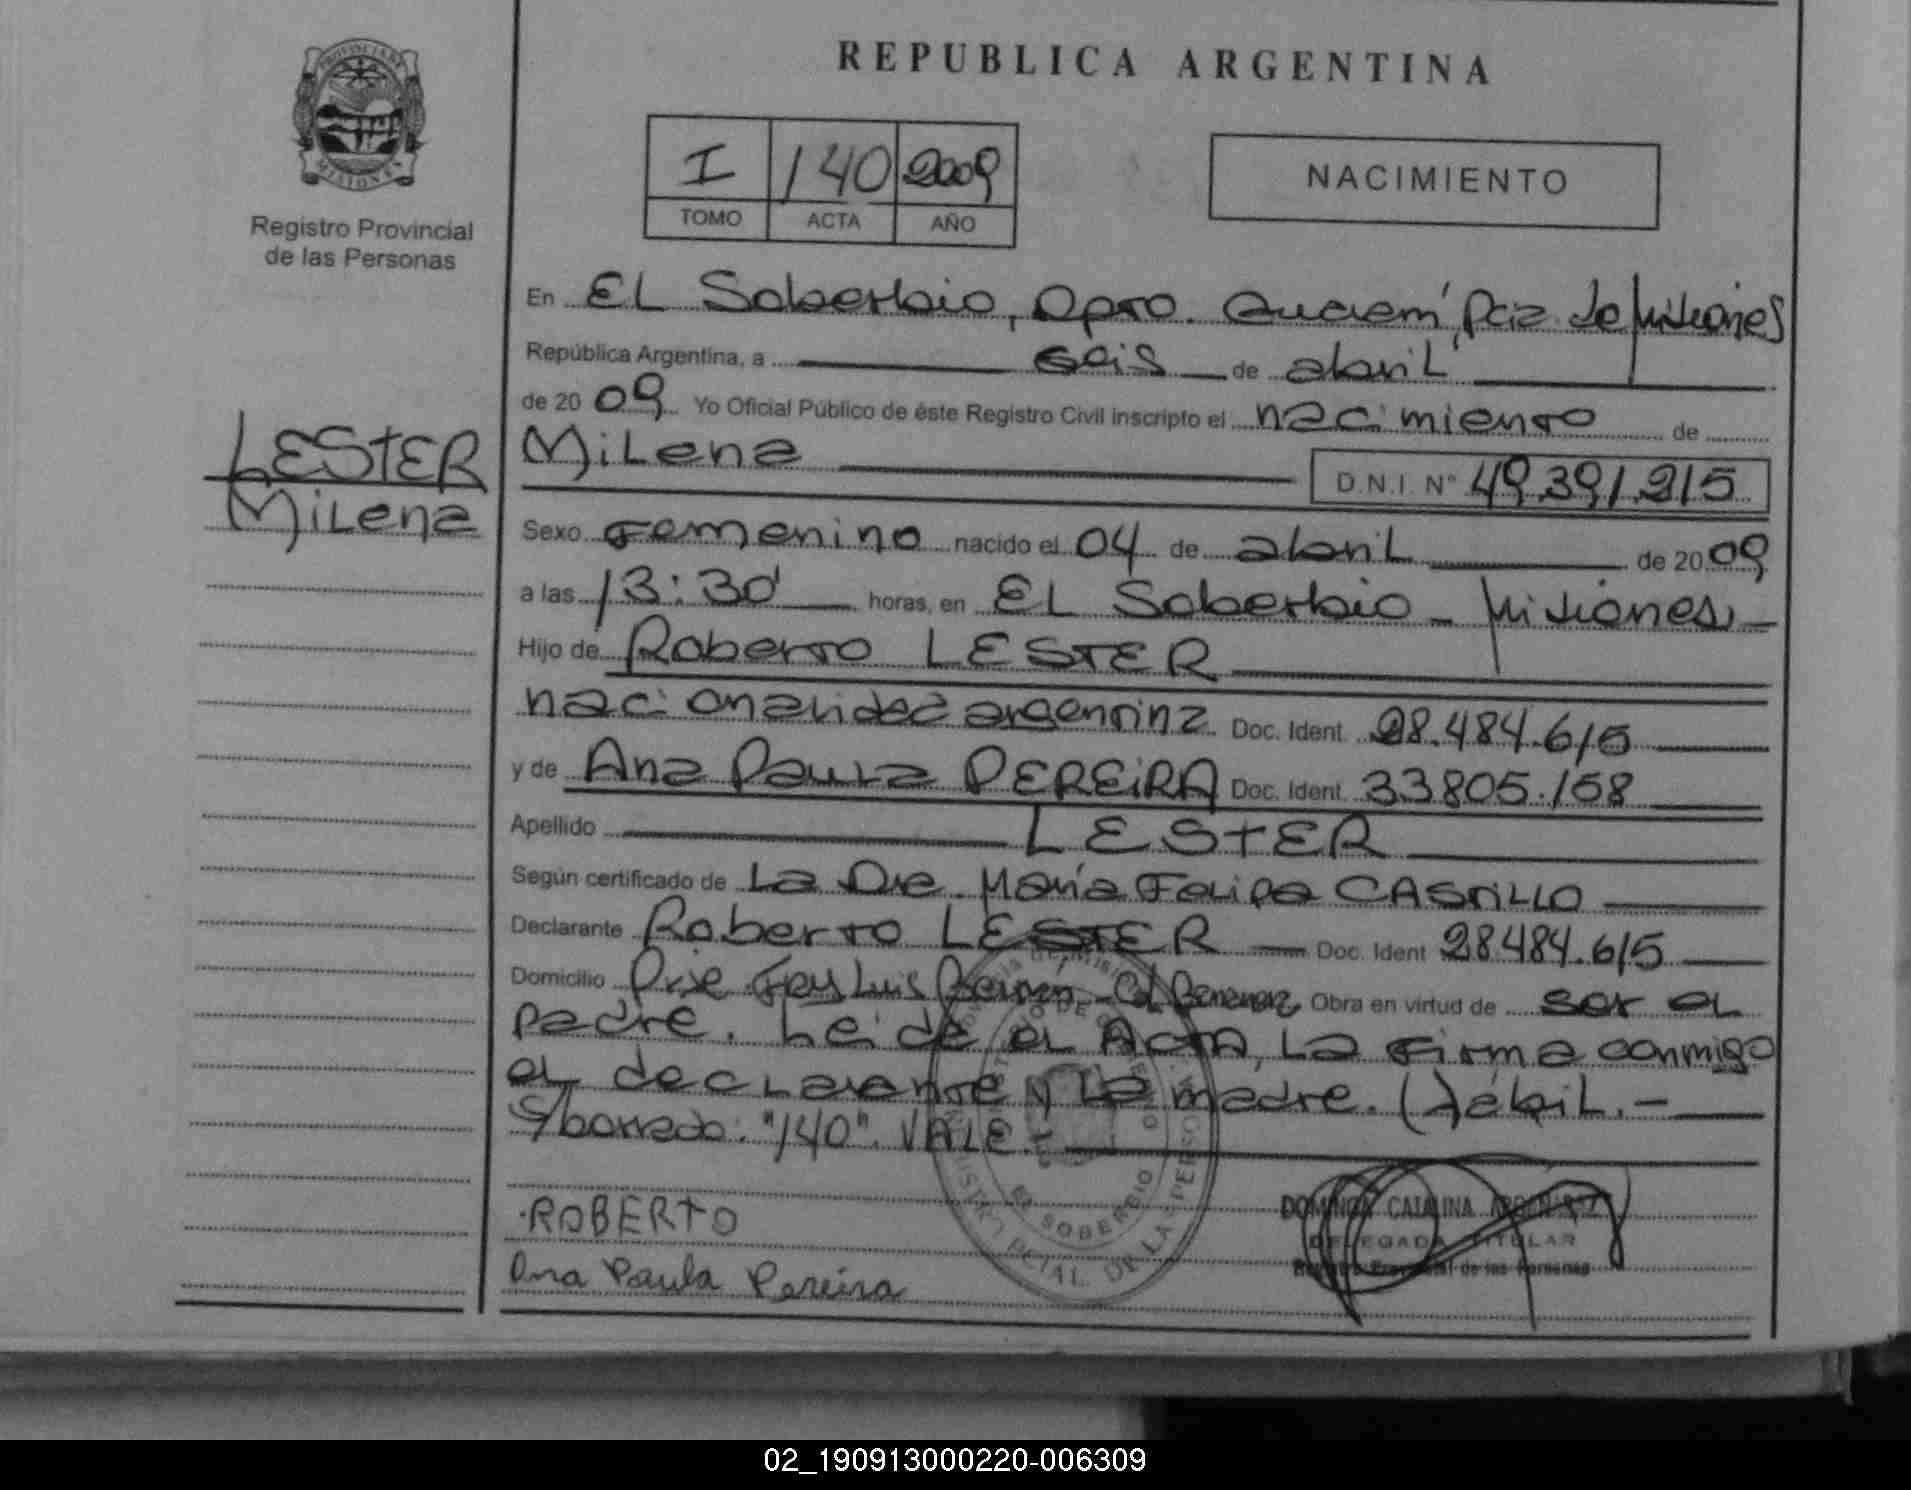 PROVINCIA DE
MISIONES
Registro Provincial
de las Personas
LESTER
Milena
REPUBLICA ARGENTINA
I 140 2009
TOMO ACTA AÑO
NACIMIENTO
En EL Soberbio, Dpto. Guaraní, Pcia de Misiones
República Argentina, a seis de abril
de 2009 Yo Oficial Público de éste Registro Civil inscripto el nacimiento de
Milena D.N.I. N° 49.391.215
Sexo Femenino nacido el 04 de abril de 2009
a las 13:30' horas, en EL Soberbio - Misiones.-
Hijo de Roberto LESTER
nacionalidad argentina Doc. Ident. 28.484.615
y de Ana Paula PEREIRA Doc. Ident. 33805.158
Apellido LESTER
Según certificado de La Dra. María Felipa CASTILLO
Declarante Roberto LESTER Doc. Ident 28484.615
Domicilio Fray Luis Obra en virtud de ser el
padre. Leída el Acta, La Firma conmigo
el declarante y La madre. (Hábil.-
S/borrado: "140". VALE.-
ROBERTO
Ana Paula Pereira
EL SOBERBIO
DELEGADA TITULAR
Registro Provincial de las Personas
02_190913000220-006309